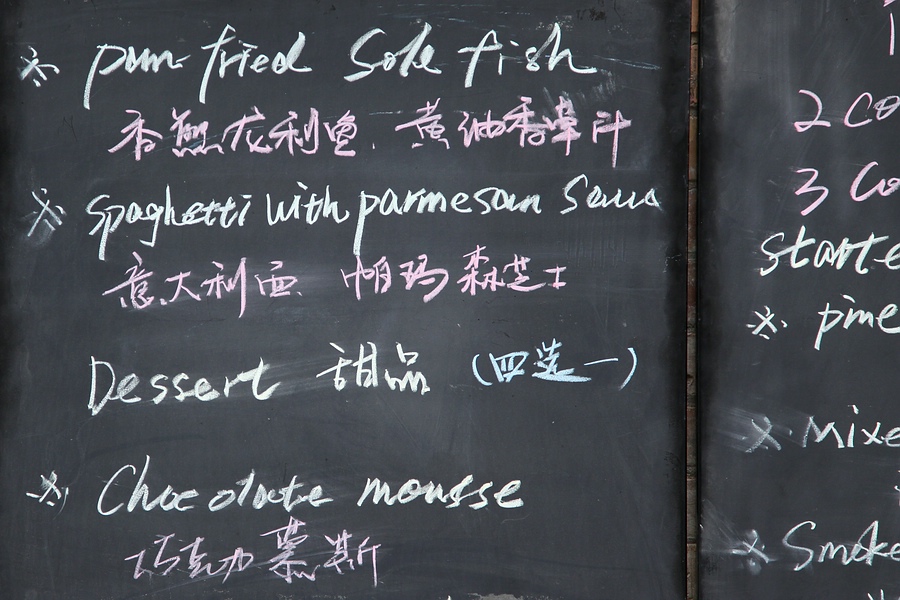 ※ pan-fried Sole fish
香煎龙利鱼. 黄油香草汁
※ Spaghetti with parmesan Sauce
意大利面 帕玛森芝士
Dessert 甜品 (四选一)
※ Chocolate mousse
巧克力慕斯
2 Co
3 Co
Starte
※ pine
※ Mixe
※ Smoke